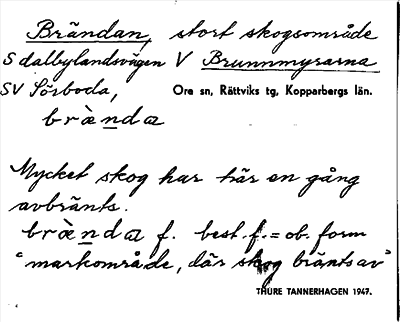 Brändan, stort skogsområde
S dalbylandsvägen V Brunnmyrarna
SV Sörboda, Ore sn, Rättviks tg, Kopparbergs län.
brä̀nda
Mycket skog har här en gång
avbränts.
brä̀nda f. best. f. = ob. form
"markområde, där skog bränts av"
THURE TANNERHAGEN 1947.